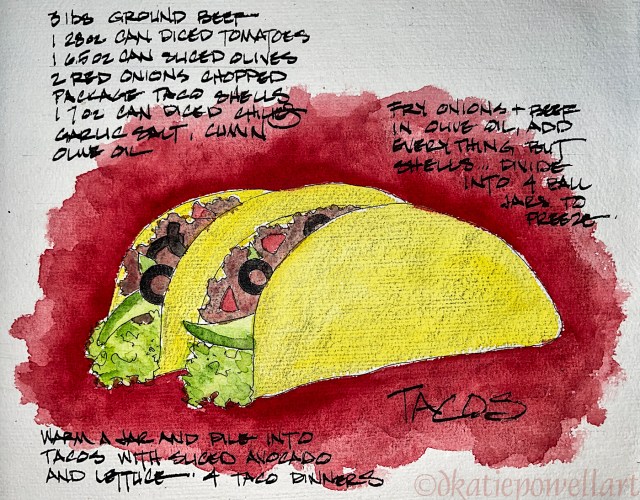 3 lbs GROUND BEEF
1 28oz CAN DICED TOMATOES
1 6.5oz CAN SLICED OLIVES
2 RED ONIONS CHOPPED
PACKAGE TACO SHELLS
1 7oz CAN DICED CHILIES
GARLIC SALT, CUMIN
OLIVE OIL
FRY ONIONS + BEEF
IN OLIVE OIL, ADD
EVERYTHING BUT
SHELLS.. DIVIDE
INTO 4 BALL
JARS TO
FREEZE
TACOS
WARM A JAR AND PILE INTO
TACOS WITH SLICED AVOCADO
AND LETTUCE.. 4 TACO DINNERS
©dkatiepowellart